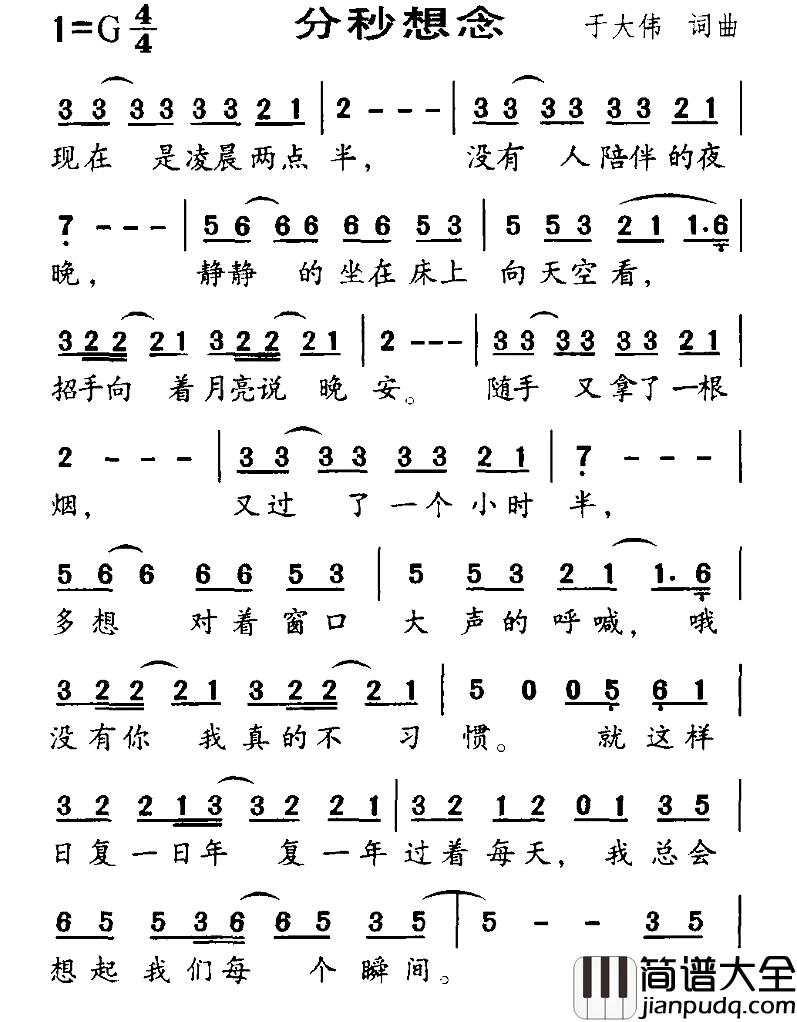 1=G 4/4 分秒想念 于大伟 词曲
3 3 3 3 3 3 2 1 | 2 - - - | 3 3 3 3 3 3 2 1 |
现在 是凌晨两点 半， 没有 人陪伴的夜
7 - - - | 5 6 6 6 6 6 5 3 | 5 5 3 2 1 1. 6 |
晚， 静静 的坐在床上 向天空看，
3 2 2 2 1 3 2 2 2 1 | 2 - - - | 3 3 3 3 3 3 2 1 |
招手向 着月亮说 晚 安。 随手 又拿了一根
2 - - - | 3 3 3 3 3 3 2 1 | 7 - - - |
烟， 又过 了一个小时 半，
5 6 6 6 6 5 3 | 5 5 3 2 1 1. 6 |
多想 对着窗口 大声的呼喊，哦
3 2 2 2 1 3 2 2 2 1 | 5 0 0 5 6 1 |
没有你 我真的不 习 惯。 就这样
3 2 2 1 3 3 2 2 1 | 3 2 1 2 0 1 3 5 |
日复一日年 复一年过着每天，我总会
6 5 5 3 6 6 5 3 5 | 5 - - 3 5 |
想起我们每 个瞬间。
简谱大全
jianpudq.com